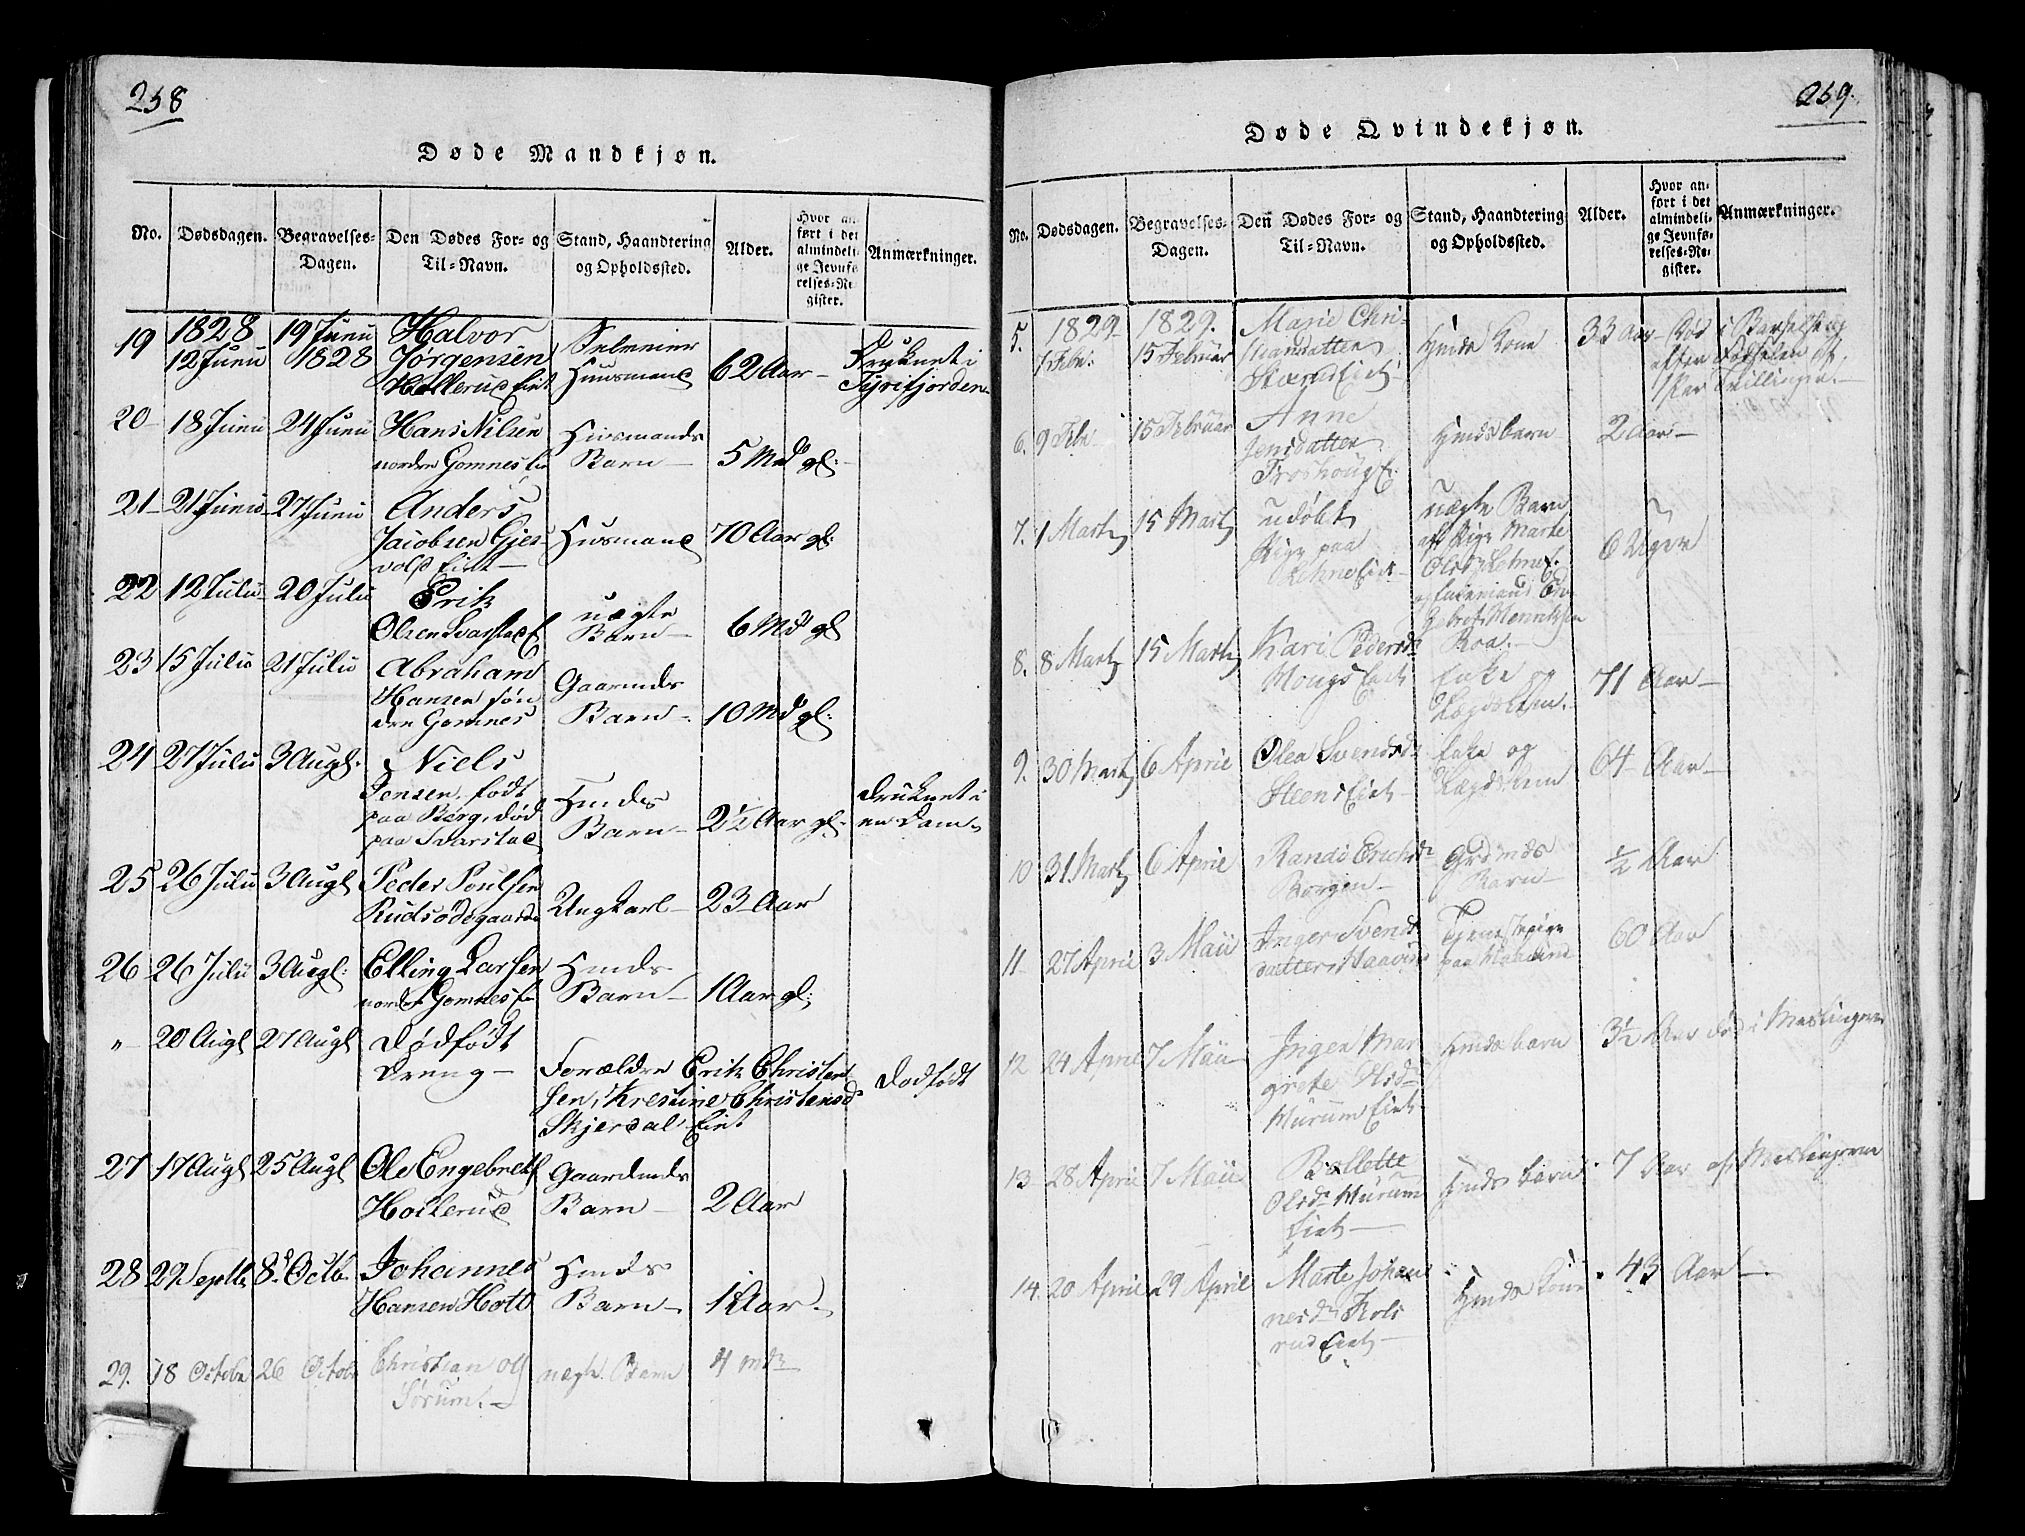 258
Døde Mandkjøn.
No. Dødsdagen. Begravelses-Dagen. Den Dødes For- og Til-Navn. Stand, Haandtering og Opholdssted. Alder. Hvor anført i det almindelige Jevnførelses-Register. Anmærkninger.
19 1828 12 Junii 19 Junii 1828 Halvor
Jørgensen
Hollerud Eiet
Huusmand 62 Aar Druknet i
Tyrifjorden
20 18 Junii 24 Junii Hans Nilsen
nordre Gomnes Ei
Huusmands
Barn 5 Md gl:
21 21 Junii 27 Junii Anders
Jacobsen Gjes-
vold Eiet
Huusmand 70 Aar gl:
22 12 Julii 20 Julii Erik
Olsen Svarstad E
uægte
Barn 6 Md gl
23 15 Julii 21 Julii Abraham
Hansen søn-
dre Gomnes
Gaarmds
Barn 10 Md gl:
24 27 Julii 3 Augt Niels
Jensen født
paa Berg, død
paa Svarstad
Hmds
Barn 2½ Aar gl: druknet i
en Dam
25 26 Julii 3 Augt Peder Poulsen
Rudsødegaarden
Ungkarl 23 Aar
26 26 Julii 3 Augt: Elling Larsen
nordre Gomnes Ei
Hmds
Barn 1 Aar gl:
" 20 Augt 27 Augt Dødfødt
Dreng
Forældre Erik Christen-
sen, Krestine Christensd.
Skjerdal Eiet
Dødfødt
27 17 Augt 25 Augt Ole Engebrets
Hollerud
Gaardmds
Barn 2 Aar
28 29 Septb 8d Octb. Johannes
Hansen Holt
Hmds
Barn 1 Aar
29. 18 Octobr 26 Octobr Christian Ols
Sørum.
uægte Barn 4 md
259.
Døde Qvindekjøn.
No. Dødsdagen. Begravelses-Dagen. Den Dødes For- og Til-Navn. Stand, Haandtering og Opholdssted. Alder. Hvor anført i det almindelige Jevnførelses-Register. Anmærkninger.
5. 1829 1 Febr. 1829. 15 Februar Marie Chri-
stiansdatter
Eiet
Hmds Kone 33 Aar Død i Barselseng
efter Fødselen af
1 Par Tvillinger.
6. 9 Febr 15 Februar Anne
Jensdatter
Froshoug E.
Hmds barn 2 Aar
7. 1 Marts 15 Marts udøbt
Pige paa
Lehne Eiet
uægte Barn
af Pige Marte
Olsd. Lehne E.
6 Uger
Roa.
8. 8 Marts 15 Marts Kari Pedersd
Moug Eiet
Enke og
Lægdslem. 71 Aar
9. 30 Marts 6 April Olea Svendsd
Steens Eiet
Enke og
Lægdslem 64 Aar
10 31 Marts 6 April Randi Erichsd
Borgen
Grdmds
Barn ½ Aar
11 27 April 3 Maii Inger Svends-
datter Maavind
Tjenestepige
paa Maavind 60 Aar
12 24 April 7 Maii Ingen Mar-
grete
Murum Eiet
Hmds barn 3½ Aar død i Meslingerne
13 28 April 7 Maii Bollette
Olsd Murum
Eiet
Hmds barn 7 Aar af Meslingerne
14. 20 April 29 April Marte Johan-
nesd Fols-
rud Eiet
Hmds Kone 43 Aar